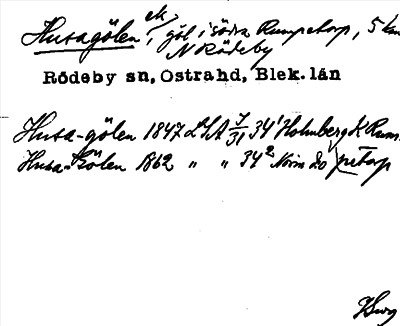 Husagölen, ek, göl i södra Rumpetorp, 5 km
N Rödeby
Rödeby sn, Ostrahd, Blek. län
Husa-gölen 1847 LSA 7/31 34¹ Holmberg k Rum-
Husa-Gölen 1862 " " 34² Norin do petorp